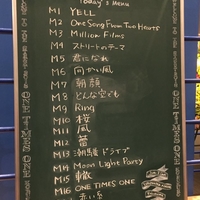 Today's Menu
M1 YELL
M2 One Song From Two Hearts
M3 Million Films
M4 ストリートのテーマ
M5 君になれ
M6 向かい風
M7 朝顔
M8 どんな空でも
M9 Ring
M10 桜
M11 風
M12 蕾
M13 潮騒ドライブ
M14 Moon Light Party
M15 轍
M16 ONE TIMES ONE
赤い糸
ONE TIMES ONE